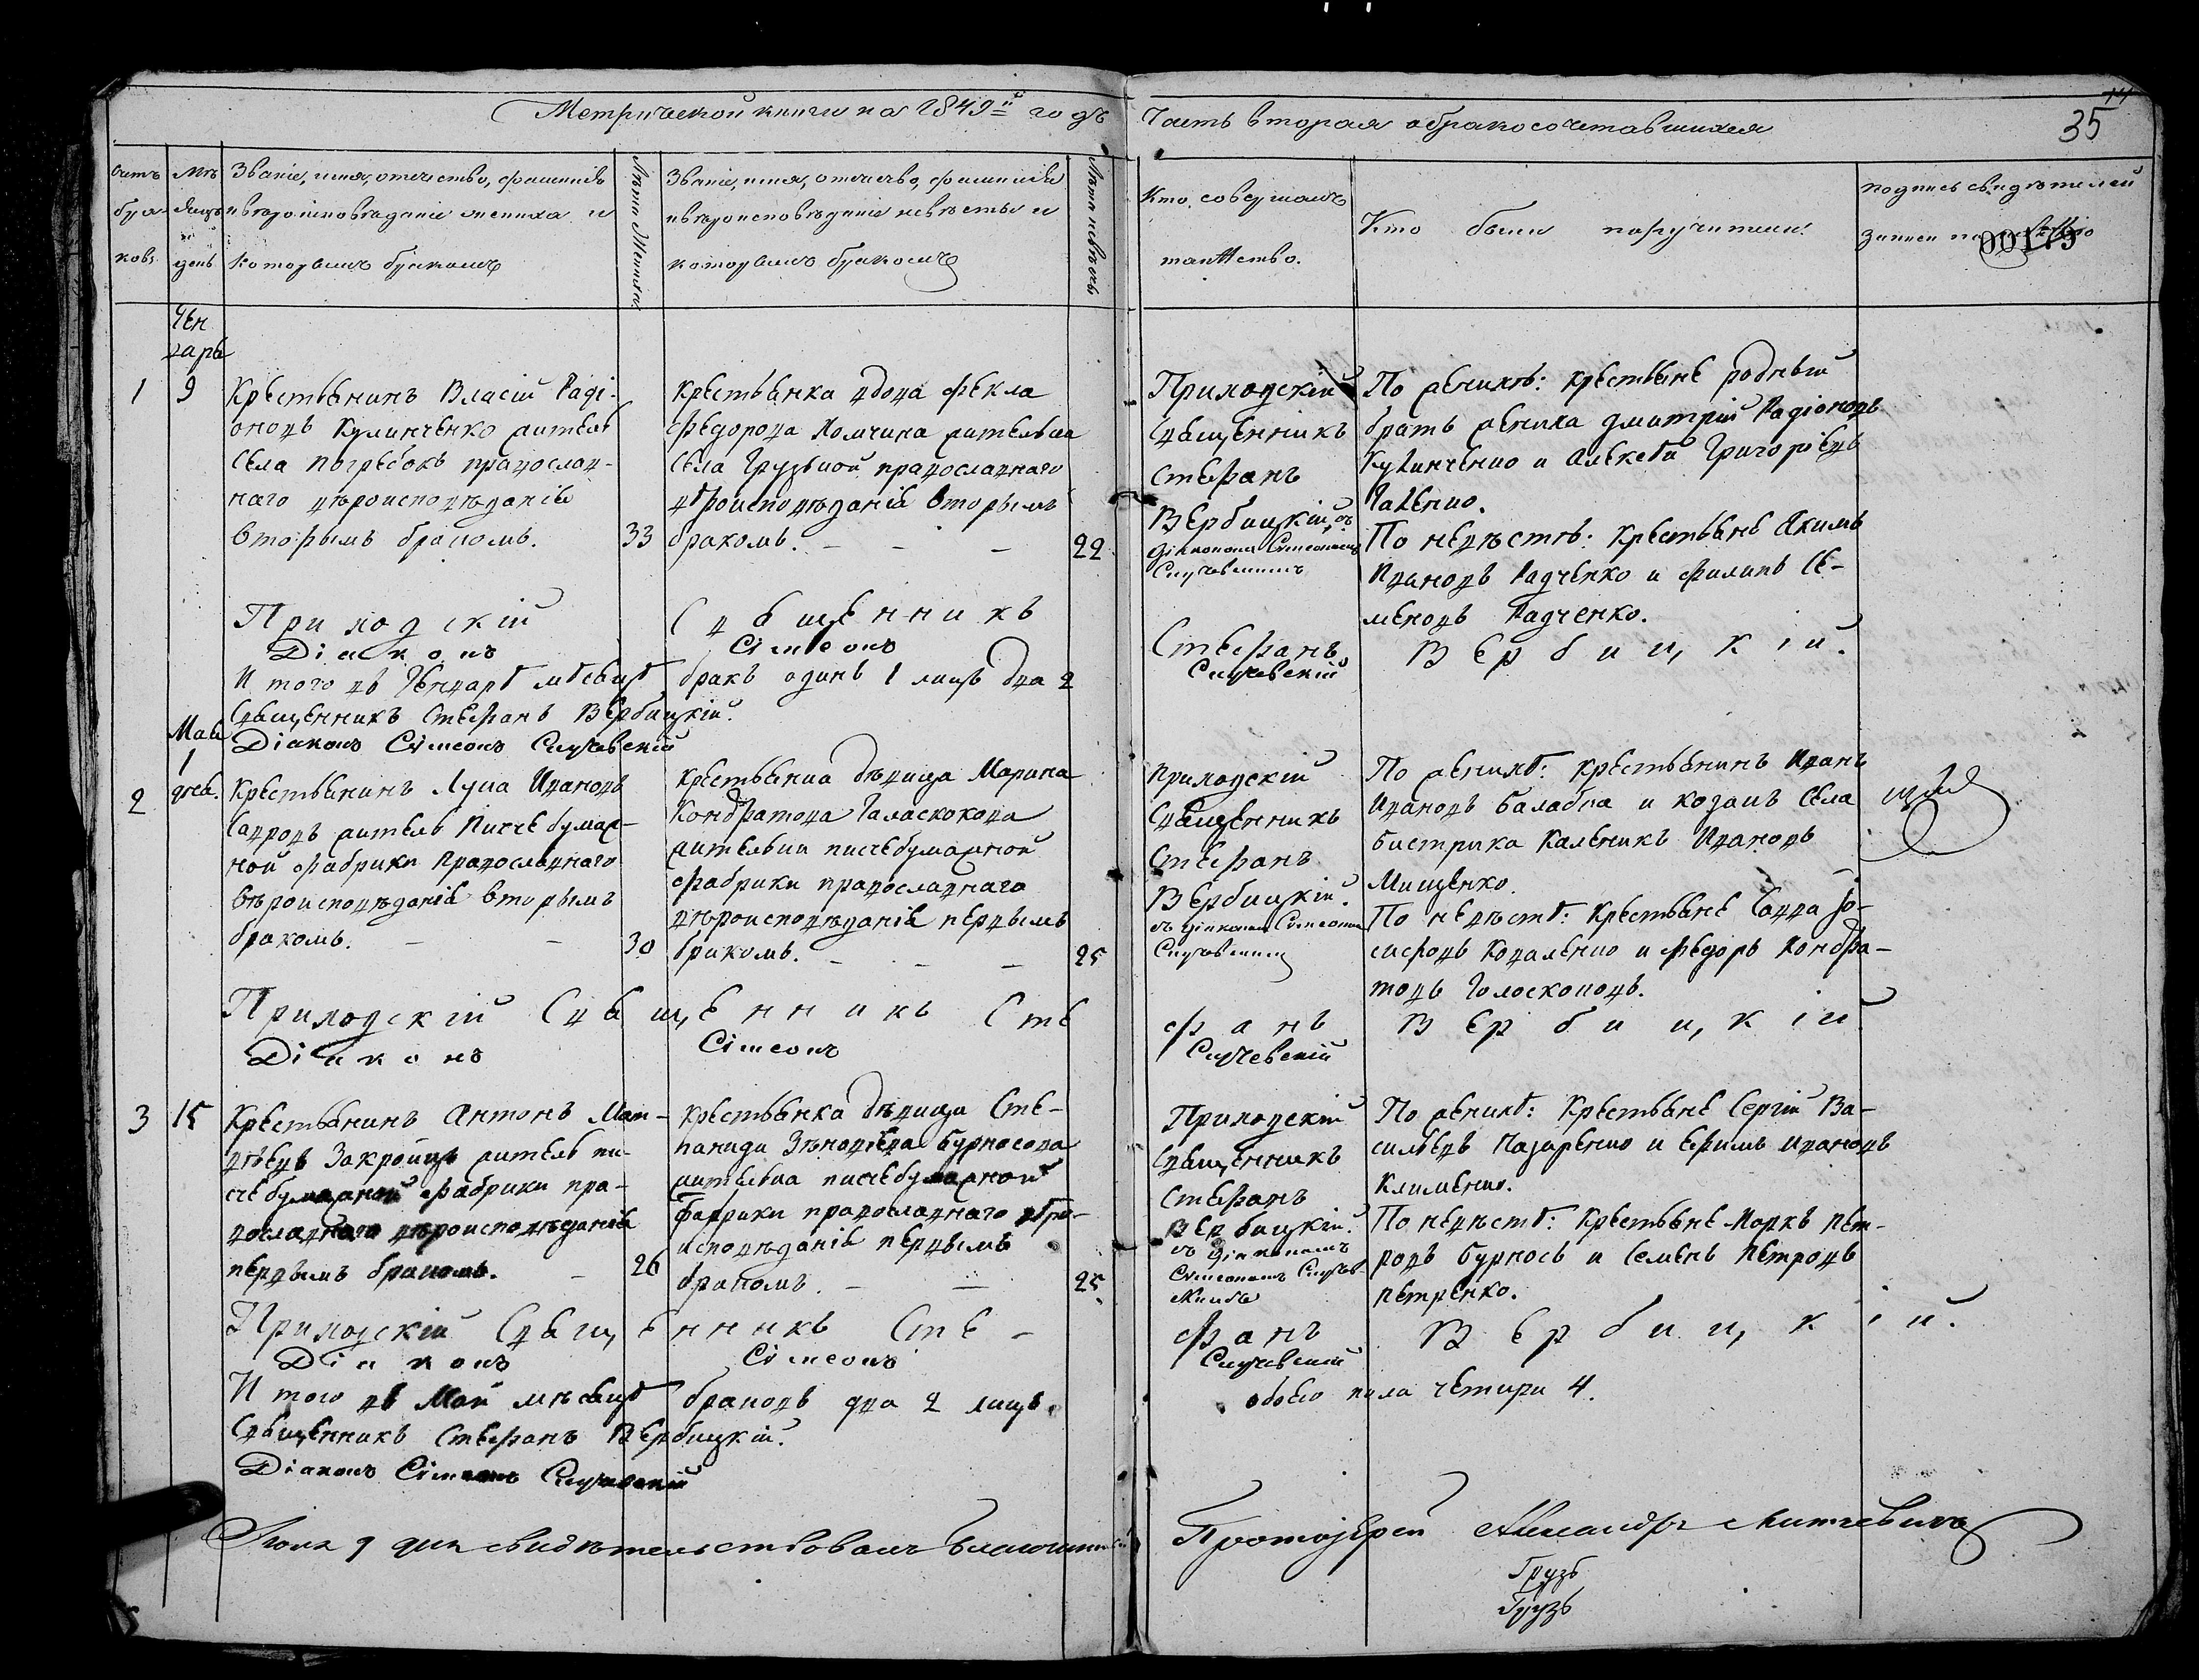 Метрической книги на 1849й годъ
Часть вторая о бракосочетавшихся
35
Счетъ браковъ
Мѣсяцъ и день
Званіе, имя, отечество, фамилія
и вѣроисповѣданіе жениха и
которымъ бракомъ
Лѣта жениха
Званіе, имя, отечество, фамилія
и вѣроисповѣданіе невѣсты и
которымъ бракомъ
Лѣта невѣсты
Кто совершалъ
таинство.
Кто были поручители
подпись свидѣтелей
записи по
00179
Генварь
1
9
Крестьянинъ Власій Радіоновъ Кулинченко житель
села Погребокъ православнаго вѣроисповѣданія
вторымъ бракомъ.
33
Крестьянка вдова Фекла
Федорова Хомчина жителька
села Грузкой православнаго
вѣроисповѣданія вторымъ
бракомъ.
22
Приходскій
Священникъ
Стефанъ
Вербицкій съ
діякономъ Симеономъ
Случевскимъ
По женихѣ: крестьяне родный
братъ жениха Дмитрій Радіоновъ
Кулинченко и Алексѣй Григоріевъ
По невѣстѣ: Крестьяне Якимъ
Ивановъ Радченко и Филипъ Се-
меновъ Радченко.
Приходскій Священникъ Стефанъ Вербицкій.
Діаконъ Сімеонъ Случевскій
И того въ Генварѣ мѣсяцѣ бракъ одинъ 1 лицъ два 2
Священникъ Стефанъ Вербицкій.
Діаконъ Сімеонъ Случевскій
Май
1
дня.
2
Крестьянинъ Лука Ивановъ
Савровъ житель Писчебумаж-
ной фабрики Православнаго
вѣроисповѣданія вторымъ
бракомъ.
30
Крестьянка дѣвица Марина
Кондратова Галаскокова
жителька писчебумажной
фабрики православнаго
вѣроисповѣданія первымъ
бракомъ.
25
Приходскій
Священникъ
Стефанъ
Вербицкій.
съ діякономъ Симеономъ
Случевскимъ
По женихѣ: Крестьянинъ Иванъ
Ивановъ Балабка и козакъ села
Бистрика Каленикъ Ивановъ
Мищенко.
По невѣстѣ: Крестьяне Савва Іо-
сифовъ Коваленко и Федоръ Кондра-
товъ Голоскоковъ.
Приходскій Священникъ Стефанъ Вербицкій
Діаконъ Сімеонъ Случевскій
3
15
Крестьянинъ Антонъ Мат-
вѣевъ Закройцъ житель пи-
счебумажной фабрики пра-
вославнаго вѣроисповѣданія
первымъ бракомъ.
26
Крестьянка дѣвица Сте-
панида Зѣновіева Бурносова
жителька писчебумажной
фабрики православнаго вѣро-
исповѣданія первымъ
бракомъ.
25
Приходскій
Священникъ
Стефанъ
Вербицкій.
съ діякономъ
Симеономъ Случев-
скимъ
По женихѣ: Крестьяне Сергій Ва-
сильевъ Назаренко и Ефимъ Ивановъ
Клименко.
По невѣстѣ: Крестьяне Маркъ Пет-
ровъ Бурносъ и Семенъ Петровъ
Петренко.
Приходскій Священникъ Стефанъ Вербицкій.
Діаконъ Сімеонъ Случевскій
И того въ Маѣ мѣсяцѣ браковъ два 2 лицъ обоего пола четири 4.
Священникъ Стефанъ Вербицкій.
Діаконъ Сімеонъ Случевскій
Іюля 9 дня свидѣтельствовалъ Благочинный Протоіерей Александръ
Грузк
Грузк